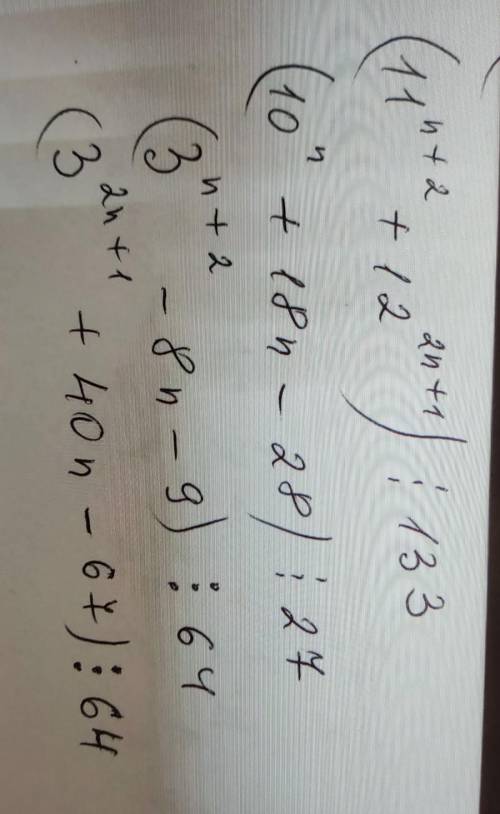 (11^{n+2} + 12^{2n+1}) ⋮ 133
(10^n + 18n - 28) ⋮ 27
(3^{n+2} - 8n - 9) ⋮ 64
(3^{2n+1} + 40n - 67) ⋮ 64